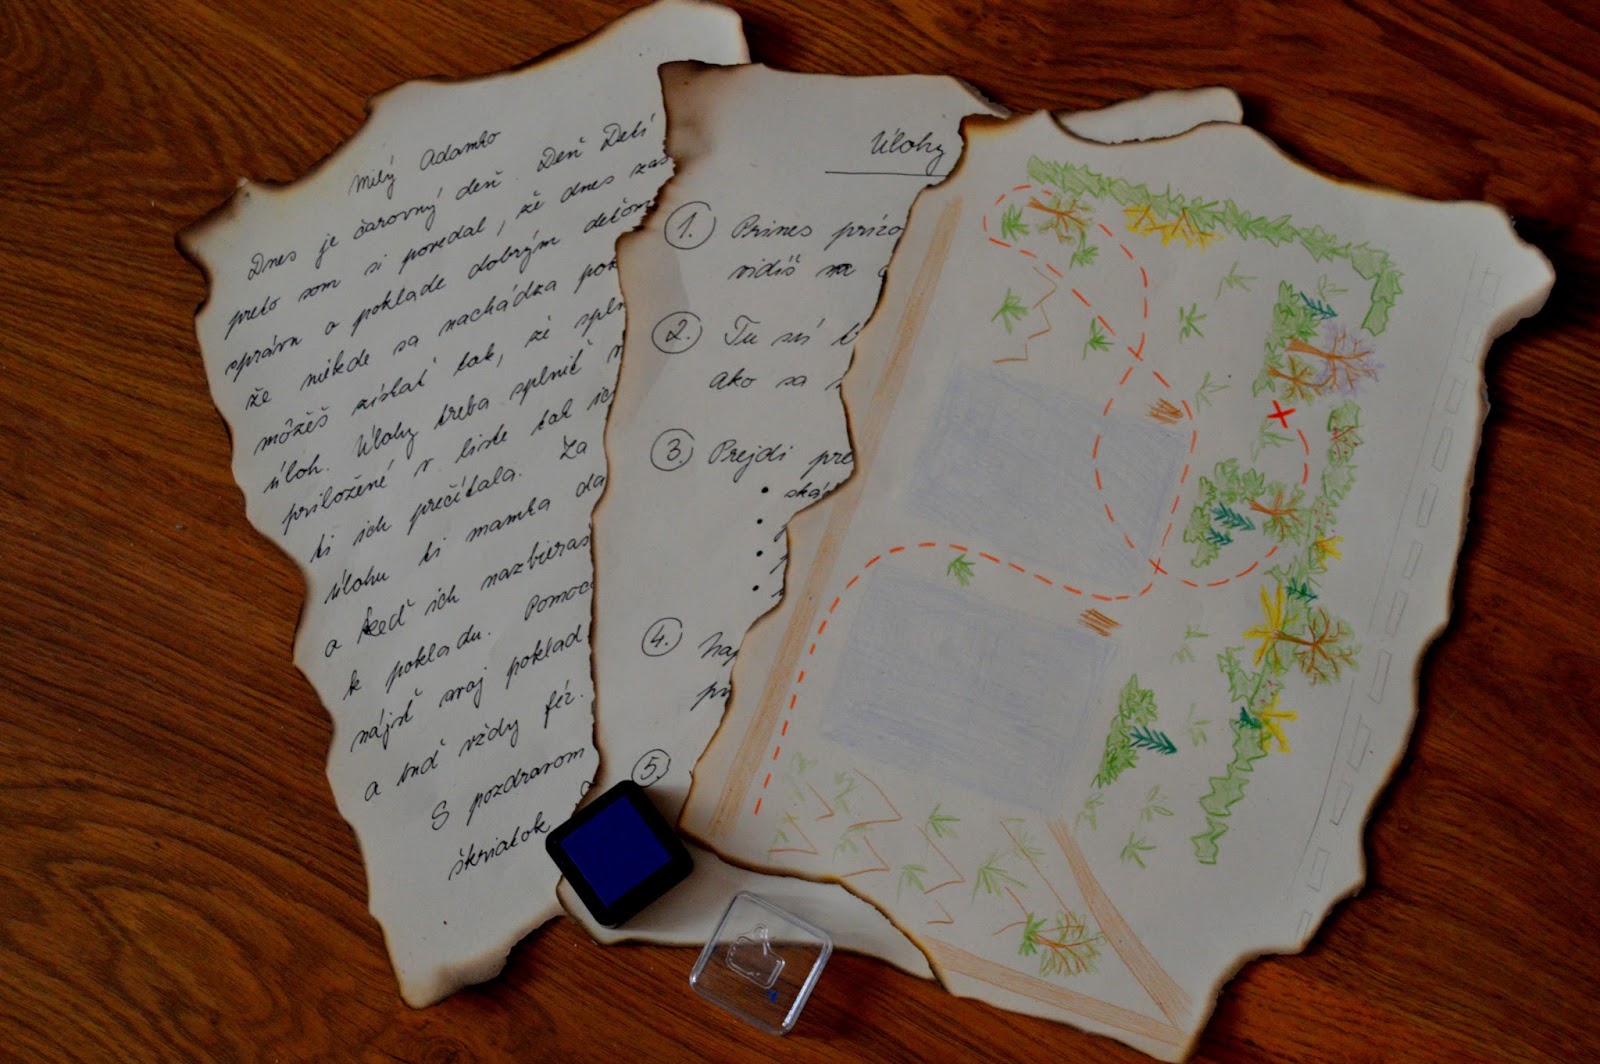 Milý Adamko
Dnes je čarovný deň. Deň Detí
preto som si povedal, že dnes zas
správu o poklade dobrým deťom
že niekde sa nachádza pok
môžeš získať tak, že spln
úloh. Úlohy treba splniť
priložené v liste tak ich
ti ich prečítala. Za
úlohu ti mamka da
a keď ich nazbieraš
k pokladu. Pomoc
nájsť svoj poklad
a buď vždy fér.
S pozdravom
škriatok
Úlohy
1. Prines prízo
vidíš na
2. Tu sú
ako sa
3. Prejdi pre
• ská
•
•
•
4. Nap
pr
5.